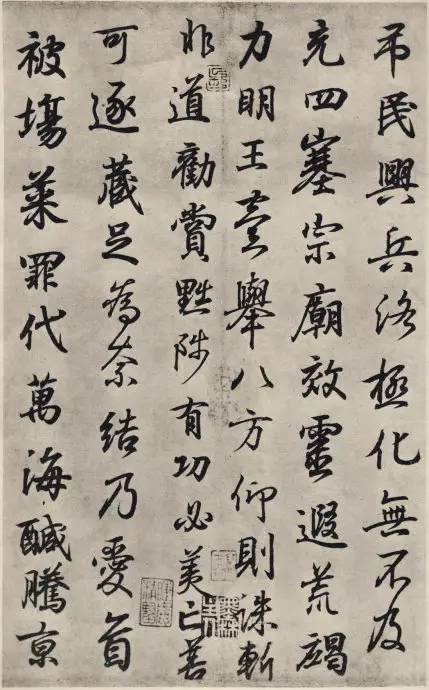 吊民興兵洛極化無不及
充四塞宗廟效靈遐荒竭
力明王壹舉八方仰則誅斬
非道勸賞黜陟有功必美善
可逐藏足為奈結乃愛首
被場菜罪代萬海醎騰京